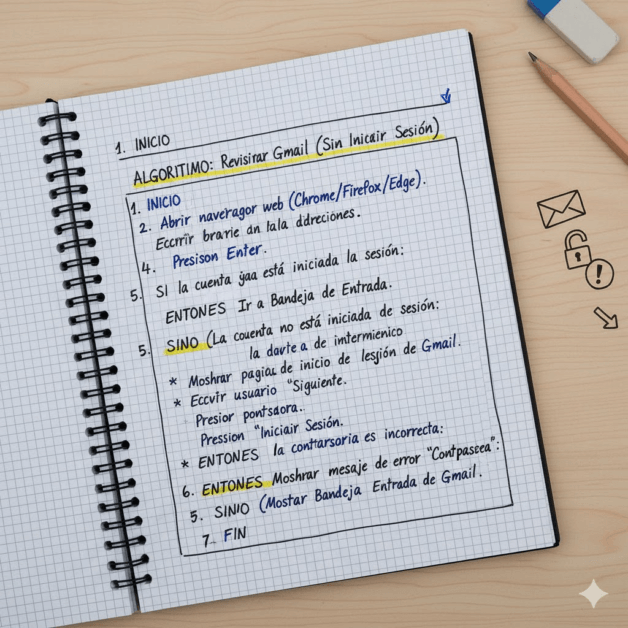 1. INICIO
ALGORITIMO: Revisirar Gmail (Sin Inicair Sesión)
1. INICIO
2. Abrir naveragor web (Chrome/Firefox/Edge).
Eccrir brarie an lala ddrecciones.
4. Presison Enter.
5. SI la cuenta ijaa está iniciada la sesión:
ENTONES Ir a Bandeja de Entrada.
5. SINO (La couenta no está iniciada de sesión:
la davte a de imtermienico
* Moshrar pagiac de inicio de lesjión de Gmail.
* Eccvir usuario "Siguiente.
Presior pontsdora.
Pression "Iniciair Sesión.
* ENTONES la conttarsoria es incorrecta:
6. ENTONES Moshrar mesaje de error "Contpascea":
5. SINIO (Mostar Bandeja Entrada de Gmail.
7. FIN